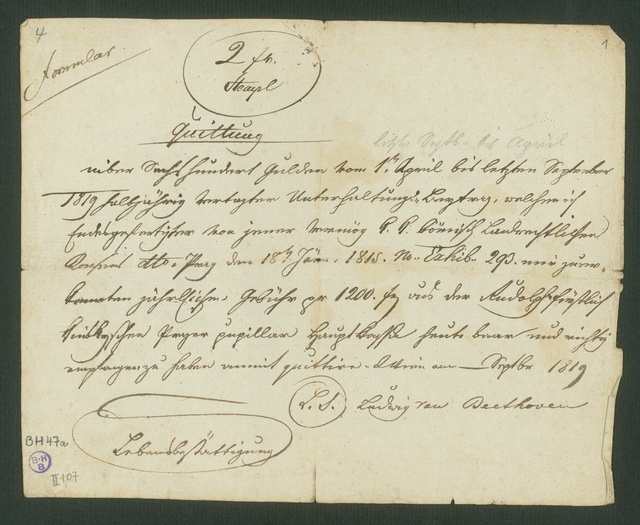 4
1
Formular
2 fr.
Stempl
Quittung
letzte Septb. bis April
über Sechshundert Gulden vom 1ten April bis letzten September
1819 halbjährig vertagten Unterhaltungs-Beytrag, welchen ich
Endesgefertigter von jener vermög k. k. böhmisch Landrechtlichen
dto. Prag den 18ten Jän. 1815. No. Exhib. 293. mir zuer-
kannten jährlichen Gebühr pr 1200. fl aus der Rudolph fürstlich
Kinskyschen Prager pupillar Hauptkasse heute baar und richtig
empfangen zu haben anmit quittire. Wien am — Septber 1819
L. S. Ludwig van Beethoven
Lebensbestättigung
BH 47a
B-H
B
II 107